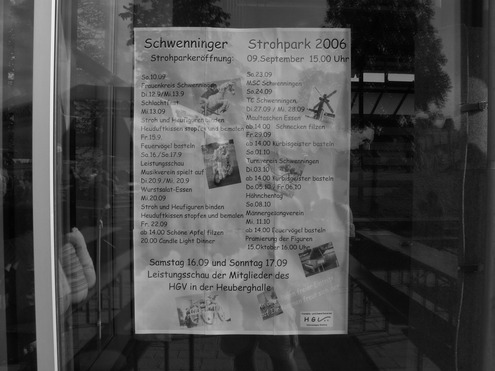 Schwenninger Strohpark 2006
Strohparkeröffnung: 09.September 15.00 Uhr
So.10.09
Frauenkreis Schwenningen
Di.12.9/Mi.13.9
Schlachtfest
Mi.13.09
Stroh und Heufiguren binden
Heuduftkissen stopfen und bemalen
Fr.15.9.
Feuervögel basteln
Sa.16./So.17.9
Leistungsschau
Musikverein spielt auf
Di.20.9/Mi. 20.9
Wurstsalat-Essen
Mi.20.09
Stroh und Heufiguren binden
Heuduftkissen stopfen und bemalen
Fr. 22.09
ab 14.00 Schöne Apfel filzen
20.00 Candle Light Dinner
Sa.23.09
MSC Schwenningen
So.24.09
TC Schwenningen
Di.27.09 / Mi. 28.09
Maultaschen Essen
ab 14.00 Schnecken filzen
Fr.29.09
ab 14.00 Kürbisgeister basteln
So.01.10
Turnverein Schwenningen
Di.03.10
ab 14.00 Kürbisgeister basteln
Do.05.10 Fr.06.10
Hähnchentag
So.08.10
Männergesangverein
Mi. 11.10
ab 14.00 Feuervögel basteln
Prämierung der Figuren
15 Oktober 16.00 Uhr
Samstag 16.09 und Sonntag 17.09
Leistungsschau der Mitglieder des
HGV in der Heuberghalle
HGV